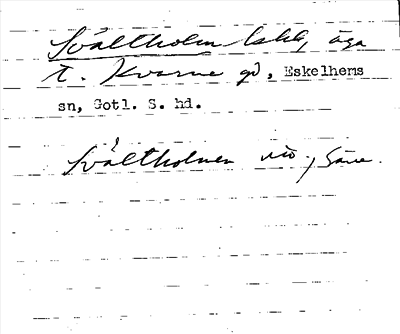 Svältholm lskl, äga
t. Kvarne gd, Eskelhems
sn, Gotl. S. hd.
Svältholmen